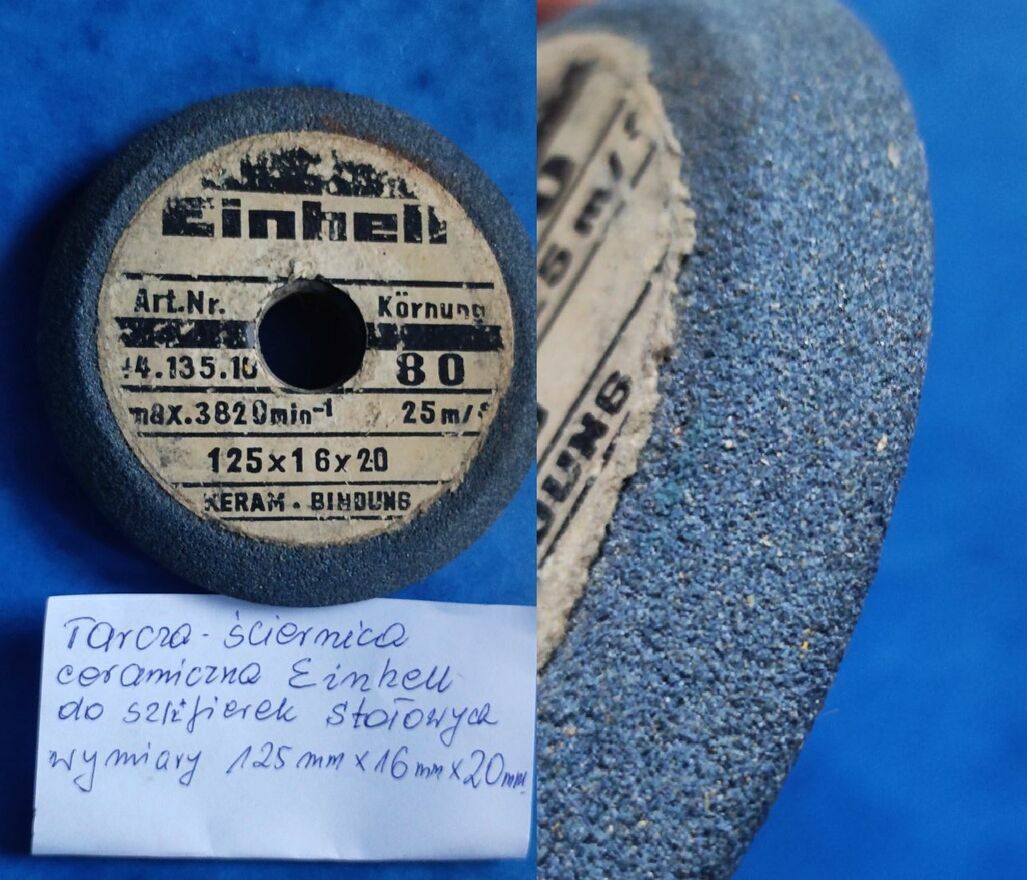 Einhell
Art.Nr. Körnung
4.135.10 80
max.3820min-1 25m/s
125x16x20
KERAM - BINDUNG
Tarcza - ściernica
ceramiczna Einhell
do szlifierek stołowych
wymiary 125 mm x 16 mm x 20 mm
25 m/s
DUNG